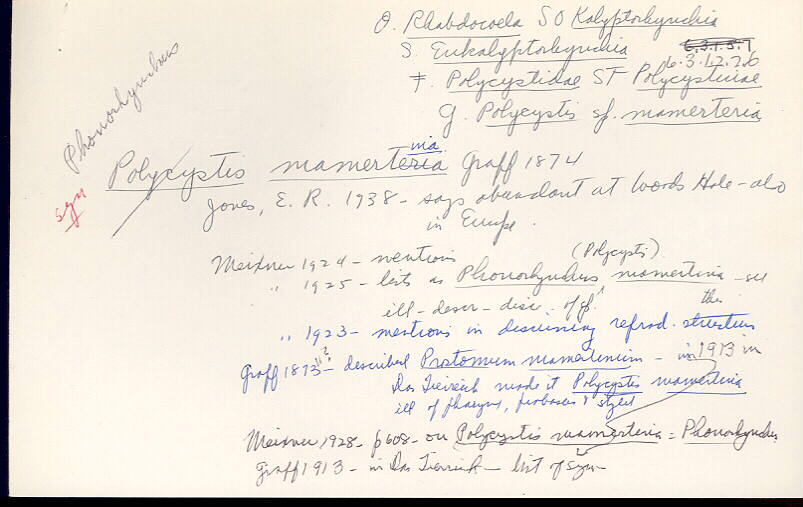 O. Rhabdocoela SO Kalyptorhynchia
S. Eukalyptorhynchia 6.3.1.5.7
6.3.1.2.2.6
F. Polycystidae SF Polycystinae
G. Polycystis sp. mamerteria
Phonorhynchus
syn
Polycystis mamerteria Graff 1874
nia
Jones, E. R. 1938 - says abundant at Woods Hole - also
in Europe.
Meixner 1924 - mentions
(Polycystis)
" 1925 - lists as Phonorhynchus mamertina - see
ill - descr - disc. of gf.
" 1923 - mentions in discussing reprod. structures
the
Graff 1873"? - described Prostomum mamertinum - in 1913 in
Das Tierreich made it Polycystis mamertina
ill of pharynx, proboscis & stylet
Meixner, 1928 - p608 - on Polycystis mamertina = Phonorhynchus
Graff 1913 - in Das Tierreich - list of syn-